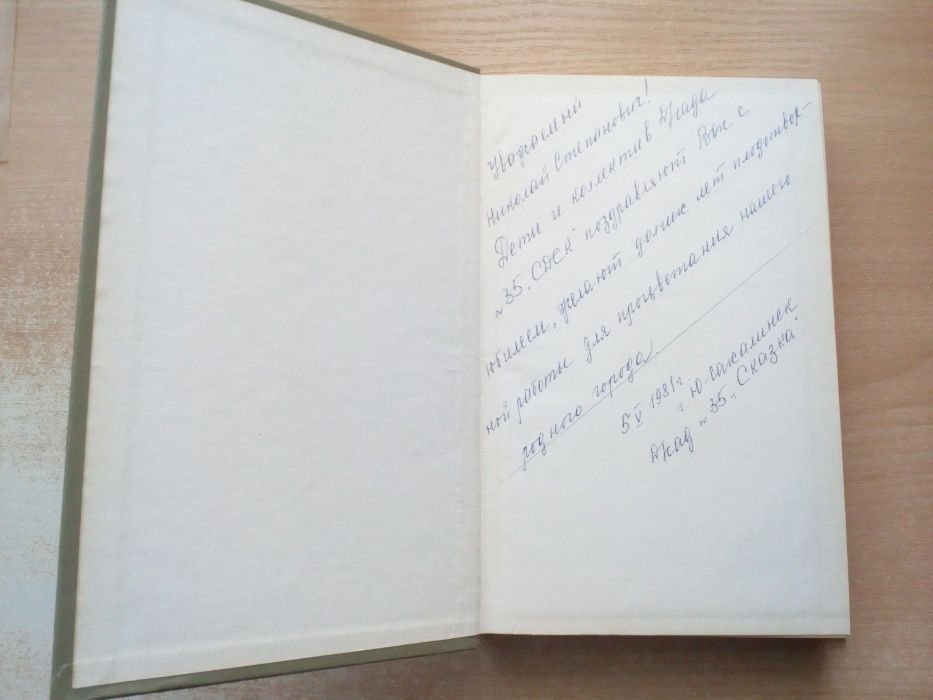 Уважаемый
Николай Степанович!
Дети и коллектив Д/сада
„35„ СДСК" поздравляют Вас с
юбилеем, желают долгих лет плодотвор-
ной работы для процветания нашего
родного города.
5 V 1981 г
г. Ю-Сахалинск
Д/сад „35„ Сказка"